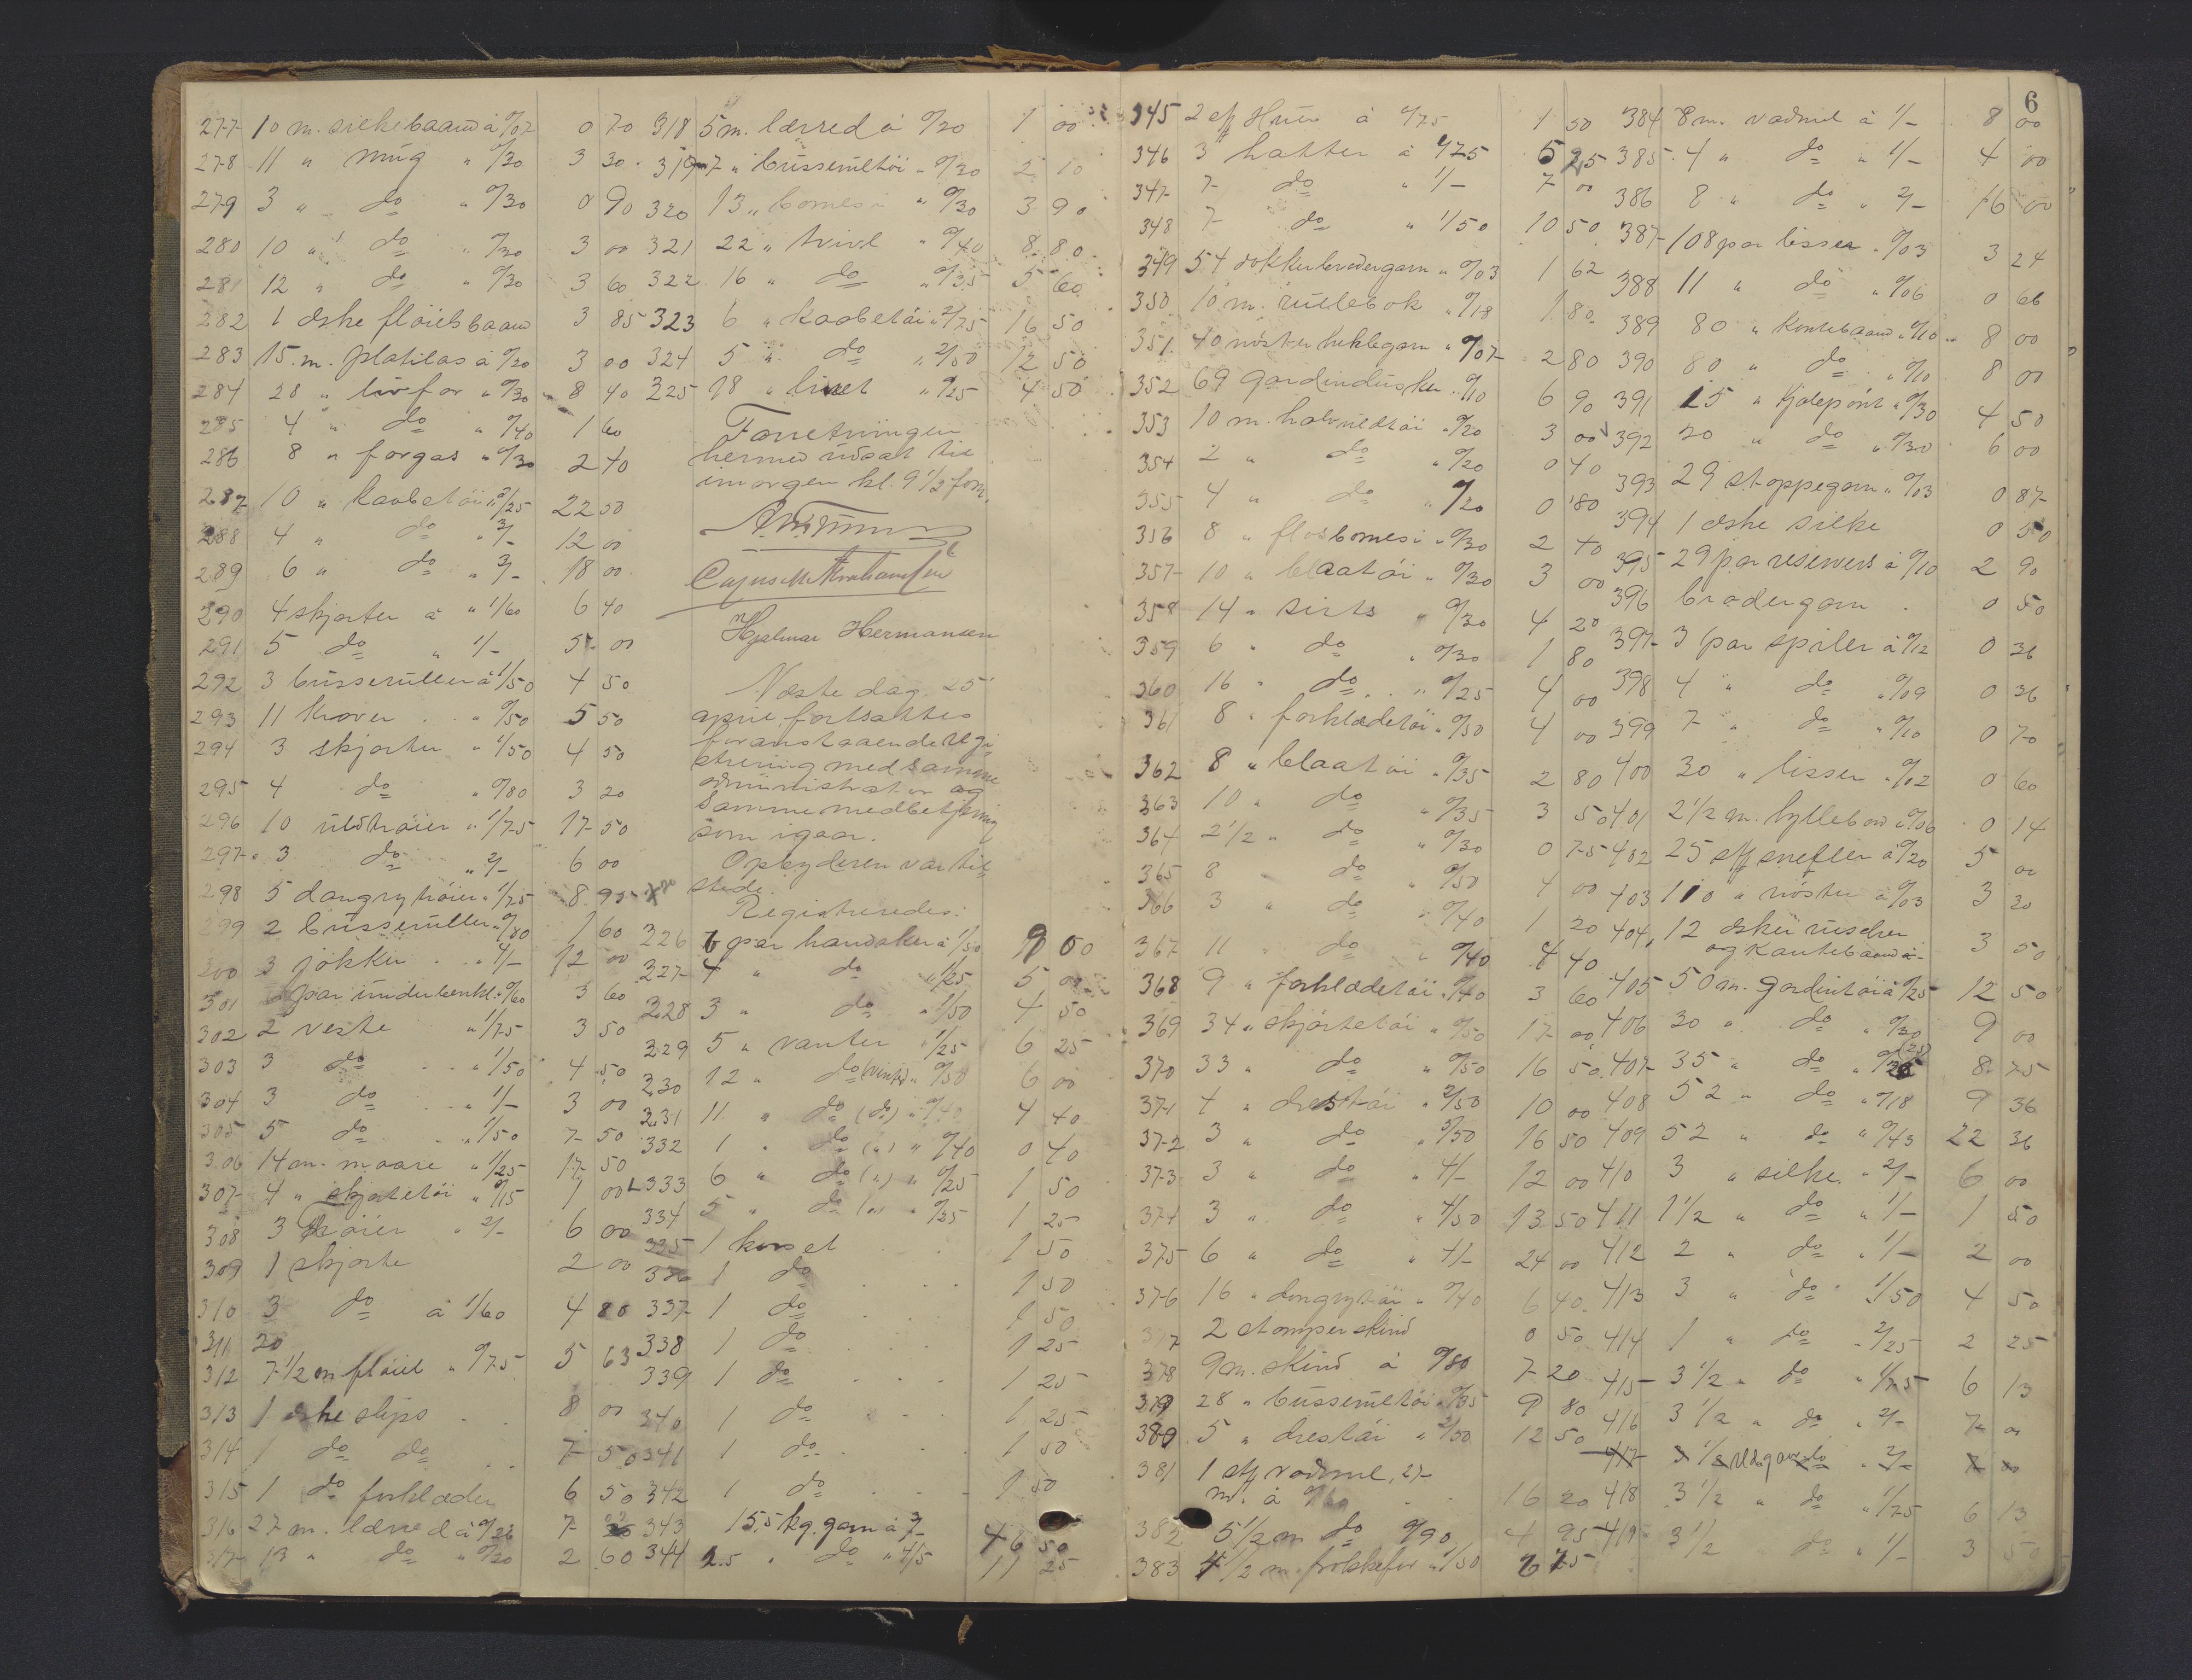 277 10 m. silkebaand à 0/07 0 70
278 11 " mug " 0/30 3 30
279 3 " do " 0/30 0 90
280 10 " do " 0/30 3 00
281 12 " do " 0/30 3 60
282 1 æske fløielsbaand 3 85
283 15 m. platilas à 0/20 3 00
284 28 " livfor " 0/30 8 40
285 4 " do " 0/40 1 60
286 8 " forgas " 0/30 2 40
287 10 " kaabetøi " 2/25 22 50
288 4 " do " 3/- 12 00
289 6 " do " 3/- 18 00
290 4 skjorter à " 1/60 6 40
291 5 do " 1/- 5 00
292 3 busseruller à 1/50 4 50
293 11 kraver " 0/50 5 50
294 3 skjorter " 1/50 4 50
295 4 do " 0/80 3 20
296 10 uldtrøier " 1/75 17 50
297 3 do " 2/- 6 00
298 5 dongrytrøier " 1/75 8 95
299 2 busseruller " 0/80 1 60
300 3 jakker " 4/- 12 00
301 6 par underbenkl. " 0/60 3 60
302 2 veste " 1/75 3 50
303 3 do " 1/50 4 50
304 3 do " 1/- 3 00
305 5 do " 1/50 7 50
306 14 m. moare " 1/25 17 50
307 4 " skjortetøi " 0/15 1 00
308 3 trøier " 2/- 6 00
309 1 skjorte 2 00
310 3 do à 1/60 4 80
311 20
312 7 1/2 m fløiel " 0/75 5 63
313 1 æske slips 8 00
314 1 do do 7 50
315 1 do forklæder 6 50
316 27 m. lærred à 0/26 7 02
317 13 " do " 0/20 2 60
318 5 m. lærred à 0/20 1 00
319 7 " busserultøi " 0/30 2 10
320 13 " bomesi " 0/30 3 90
321 22 " tvivl " 0/40 8 80
322 16 " do " 0/35 5 60
323 6 " kaabetøi " 2/75 16 50
324 5 " do " 2/50 12 50
325 18 " linet " 0/25 4 50
Forretningen
hermed udsat til
imorgen kl. 9 1/2 form.
Hjalmar Hermansen
Næste dag 25
april fortsattes
foranstaaende regi
strering med samme
administrator og
samme medbetjening
som igaar.
Opbyderen var til
stede.
Registreredes:
326 6 par handsker à 1/50 9 00
327 4 " do " 1/25 5 00
228 3 " do " 1/50 4 50
229 5 " vanter " 1/25 6 25
230 12 " do " 0/50 6 00
231 11 " do (do) " 0/40 4 40
332 1 " do (") " 0/40 0 40
333 6 " do (") " 0/25 1 50
334 5 " do (") " 0/25 1 25
335 1 korset 1 50
336 1 do 1 50
337 1 do 1 50
338 1 do 1 25
339 1 do 1 25
340 1 do 1 25
341 1 do 1 50
342 1 do 1 50
343 15.5 kg. garn à 3/- 46 50
344 2.5 " do " 4/5 11 25
6
345 2 stk Huer à 0/75 1 50
346 3 hatter à 1/75 5 25
347 7 do " 1/- 7 00
348 7 do " 1/50 10 50
349 54 dokker brodergarn " 0/03 1 62
350 10 m. rullebok " 0/18 1 80
351 40 nøster heklegarn " 0/07 2 80
352 69 gardindusker " 0/10 6 90
353 10 m. halvuldtøi " 0/30 3 00
354 2 " do " 0/20 0 40
355 4 " do " 0/20 0 80
356 8 " flosbomesi " 0/30 2 40
357 10 " blaatøi " 0/30 3 00
358 14 " sirts " 0/30 4 20
359 6 " do " 0/30 1 80
360 16 " do " 0/25 4 00
361 8 " forklædetøi " 0/50 4 00
362 8 " blaatøi " 0/35 2 80
363 10 " do " 0/35 3 50
364 2 1/2 " do " 0/30 0 75
365 8 " do " 0/50 4 00
366 3 " do " 0/40 1 20
367 11 " do " 0/40 4 40
368 9 " forklædetøi " 0/40 3 60
369 34 " skjortetøi " 0/50 17 00
370 33 " do " 0/50 16 50
371 4 " drestøi " 2/50 10 00
372 3 " do " 5/50 16 50
373 3 " do " 4/- 12 00
374 3 " do " 4/50 13 50
375 6 " do " 4/- 24 00
376 16 " dongrytøi " 0/40 6 40
377 2 stomper skind 0 50
378 9 m. skind à 0/80 7 20
379 28 " busserultøi " 0/35 9 80
380 5 " drestøi " 2/50 12 50
381 1 stk vadmel, 27
m. à 0/60 16 20
382 5 1/2 m do 0/90 4 95
383 4 1/2 m. " 1/50 6 75
384 8 m. vadmel à 1/- 8 00
385 4 " do " 1/- 4 00
386 8 " do " 2/- 16 00
387 108 par lisser " 0/03 3 24
388 11 " do " 0/06 0 66
389 80 " kantebaand " 0/10 8 00
390 80 " do " 0/10 8 00
391 15 " kjolepønt " 0/30 4 50
392 20 " do " 0/30 6 00
393 29 stoppegarn " 0/03 0 87
394 1 æske silke 0 50
395 29 par resirvers à 0/10 2 90
396 brodergarn 0 50
397 3 par spiler à 0/12 0 36
398 4 " do " 0/09 0 36
399 7 " do " 0/10 0 70
400 30 " lisser " 0/02 0 60
401 2 1/2 m. hyllebord " 0/06 0 14
402 25 stk snefler à 0/20 5 00
403 110 " nøster à 0/03 3 30
404 12 æsker ruscher
og kantebaand à 3 50
405 50 m. gardintøi à 0/25 12 50
406 30 " do " 0/30 9 00
407 35 " do " 0/25 (25) 8 75
408 52 " do " 0/18 9 36
409 52 " do " 0/43 22 36
410 3 " silke " 2/- 6 00
411 1 1/2 " do " 1/- 1 50
412 2 " do " 1/- 2 00
413 3 " do " 1/50 4 50
414 1 " do " 2/25 2 25
415 3 1/2 " do " 1/75 6 13
416 3 1/2 " do " 2/- 7 00
417 3 1/2 do " 2/- 7 00
418 3 1/2 " do " 1/75 6 13
419 3 1/2 do " 1/- 3 50